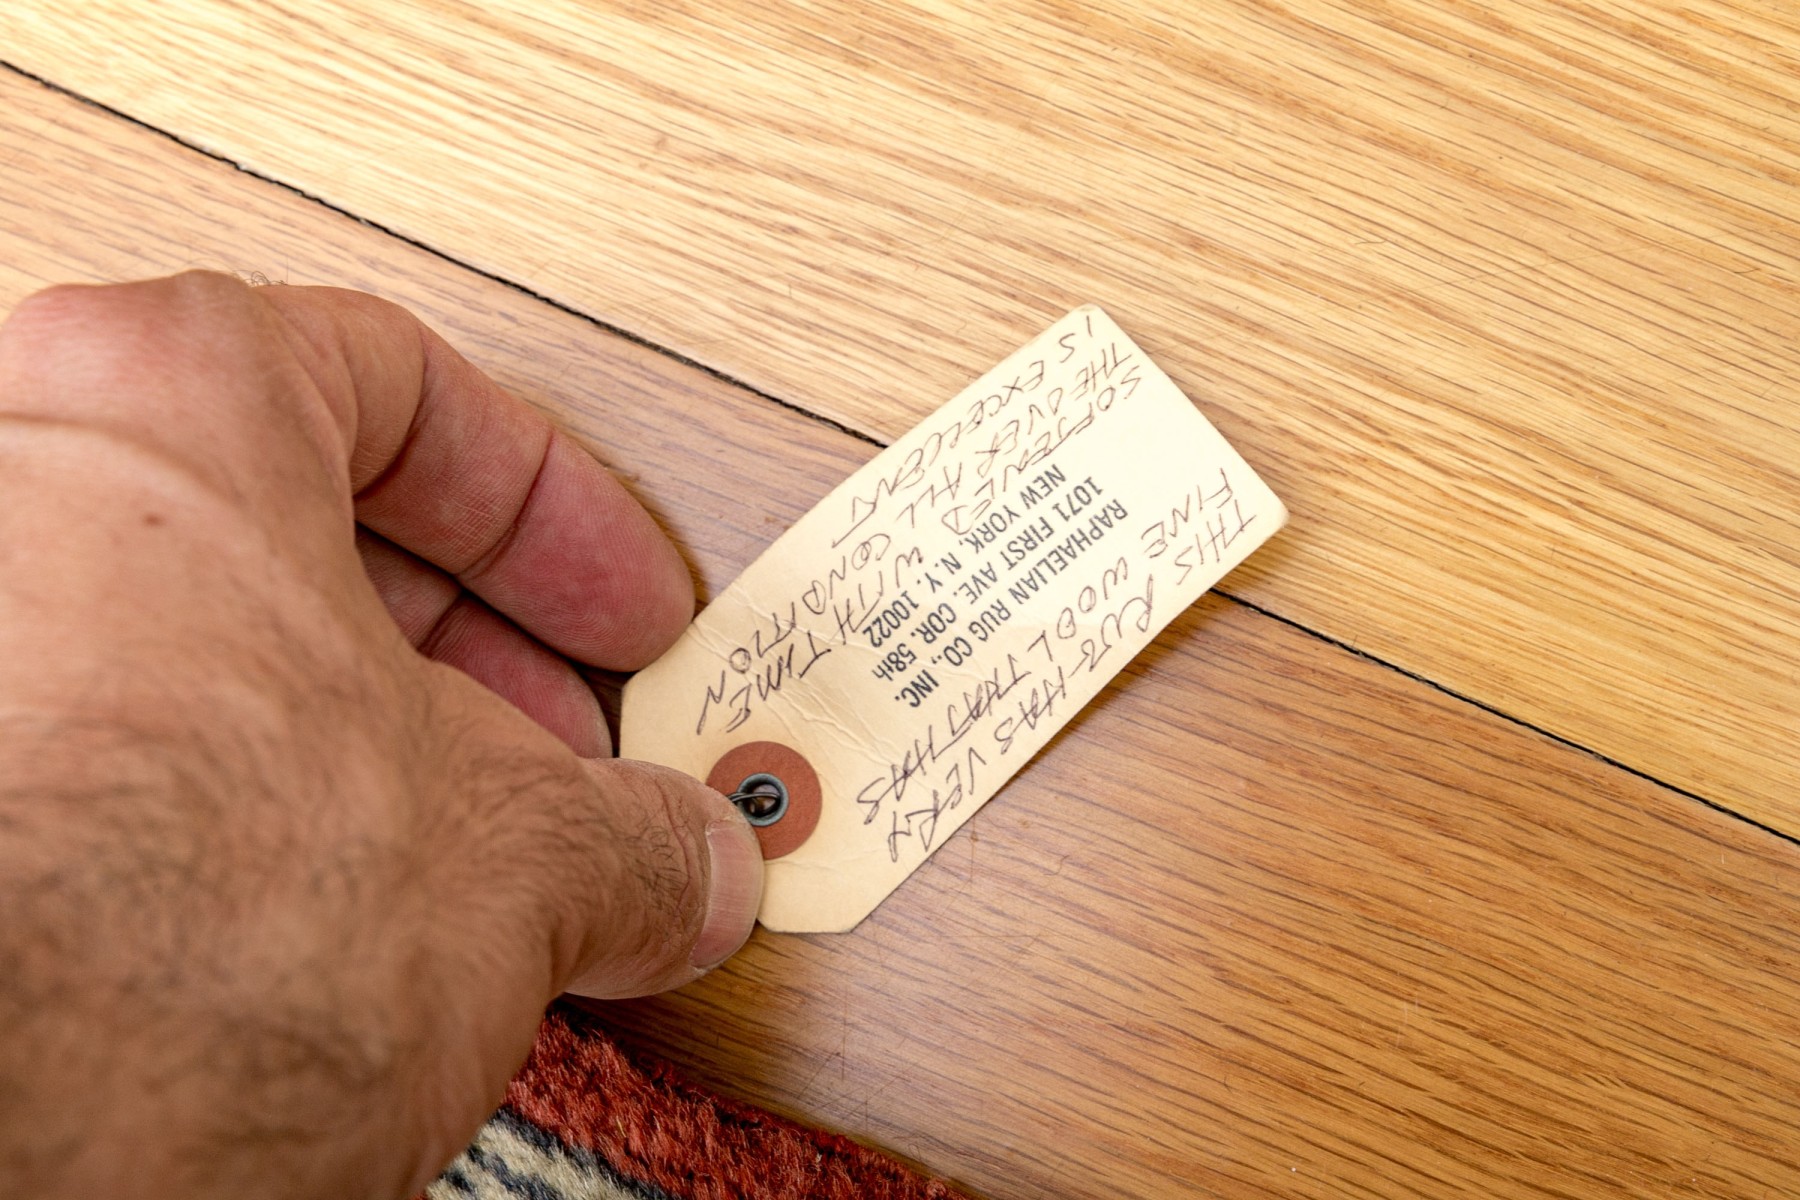 THIS RUG HAS VERY
FINE WOOL THAT HAS
RAPHAELIAN RUG CO., INC.
1071 FIRST AVE. COR. 58th
NEW YORK, N.Y. 10022
SOFTENED WITH TIME
THE OVER ALL CONDITION
IS EXCELLENT